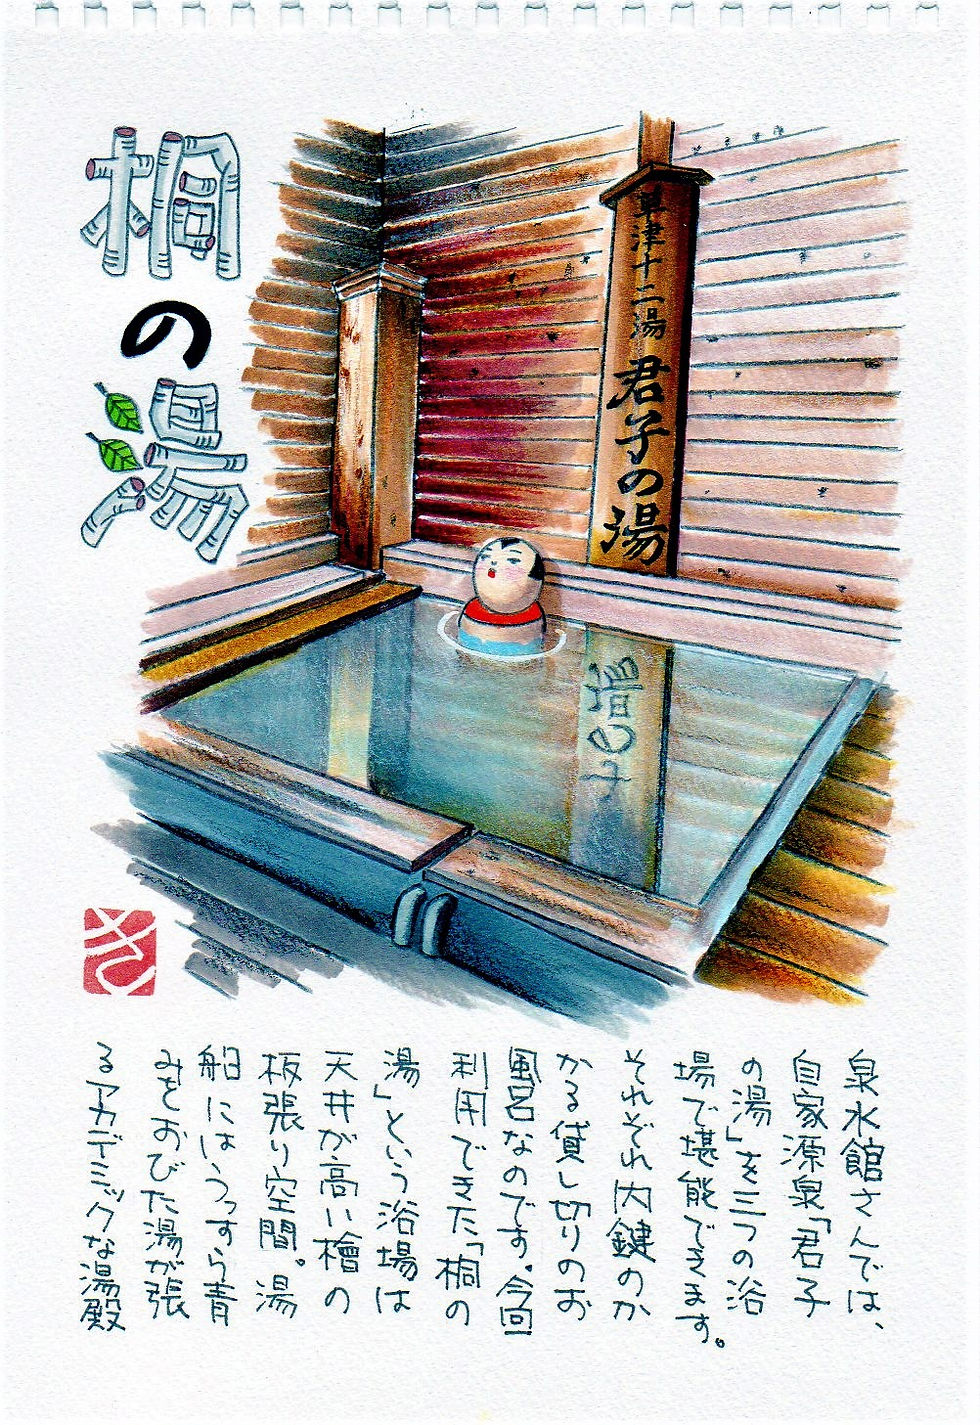 桐の湯
草津十二湯 君子の湯
泉水館さんでは、
自家源泉「君子
の湯」を三つの浴
場で堪能できます。
それぞれ内鍵のか
かる貸し切りのお
風呂なのです。今回
利用できた「桐の
湯」という浴場は
天井が高い檜の
板張り空間。湯
船にはうっすら青
みをおびた湯が張
るアカデミックな湯殿